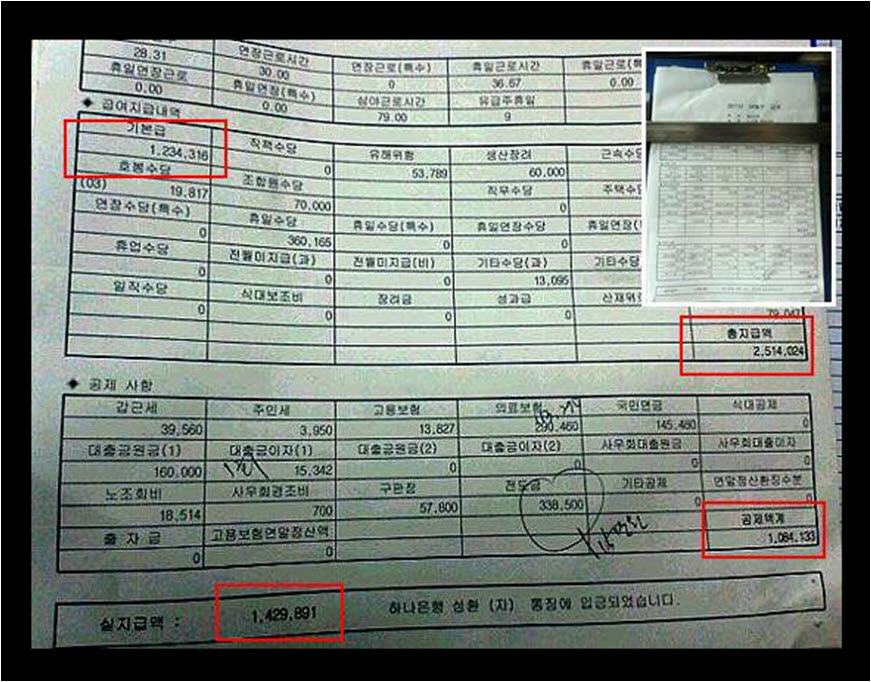 28.31 연장근로시간 연장근로(특수) 휴일근로시간 휴일근로(특
휴일연장근로 30.00 0 36.67 0.00
0.00 휴일연장(특수) 심야근로시간 유급주휴일
0.00 79.00 9
◆ 급여지급내역
기본급 직책수당 유해위험 생산장려 근속수당
1,234,316 0 53,789 60,000
호봉수당 조합원수당 직무수당 주택수당
(03) 19,817 70,000 0
연장수당(특수) 휴일수당 휴일수당(특수) 휴일연장수당 휴일연장(
0 360,165 0 0
휴업수당 전월미지급(과) 전월미지급(비) 기타수당(과) 기타수당
0 0 0 13,095
일직수당 식대보조비 장려금 성과급 산재위로
0 0 0 0 79,047
총지급액
2,514,024
◆ 공제 사항
갑근세 주민세 고용보험 의료보험 국민연금 식대공제
39,560 3,950 13,827 290,460 145,460 0
대출금원금(1) 대출금이자(1) 대출금원금(2) 대출금이자(2) 사우회대출원금 사우회대출이자
160,000 15,342 0 0 0 0
노조회비 사우회경조비 구판장 전도금 기타공제 연말정산환징수분
18,514 700 57,800 338,500 0 0
출 자 금 고용보험연말정산액 공제액계
0 0 1,084,133
실지급액 : 1,429,891 하나은행 성환 (지) 통장에 입금되었습니다.